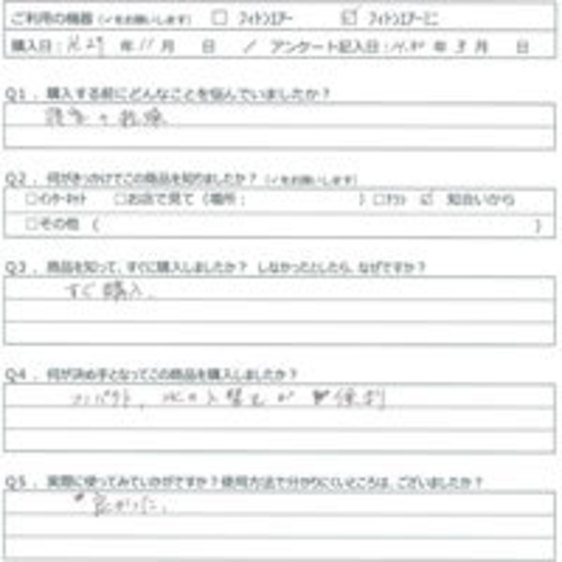 ご利用の機器（✓をお願いします） □ フィトンエアー ☑ フィトンエアーミニ
購入日：H.29 年 11 月 日 / アンケート記入日：H.30 年 3 月 日
Q1．購入する前にどんなことを悩んでいましたか？
Q2．何がきっかけでこの商品を知りましたか？（✓をお願いします）
□インターネット □お店で見て（場所： ）□チラシ ☑ 知合いから
□その他（ ）
Q3．商品を知って、すぐに購入しましたか？ しなかったとしたら、なぜですか？
すぐ購入.
Q4．何が決め手となってこの商品を購入しましたか？
コンパクト、水の入替えが 便利
Q5．実際に使ってみていかがですか？使用方法で分かりにくいところは、ございましたか？
良かった.